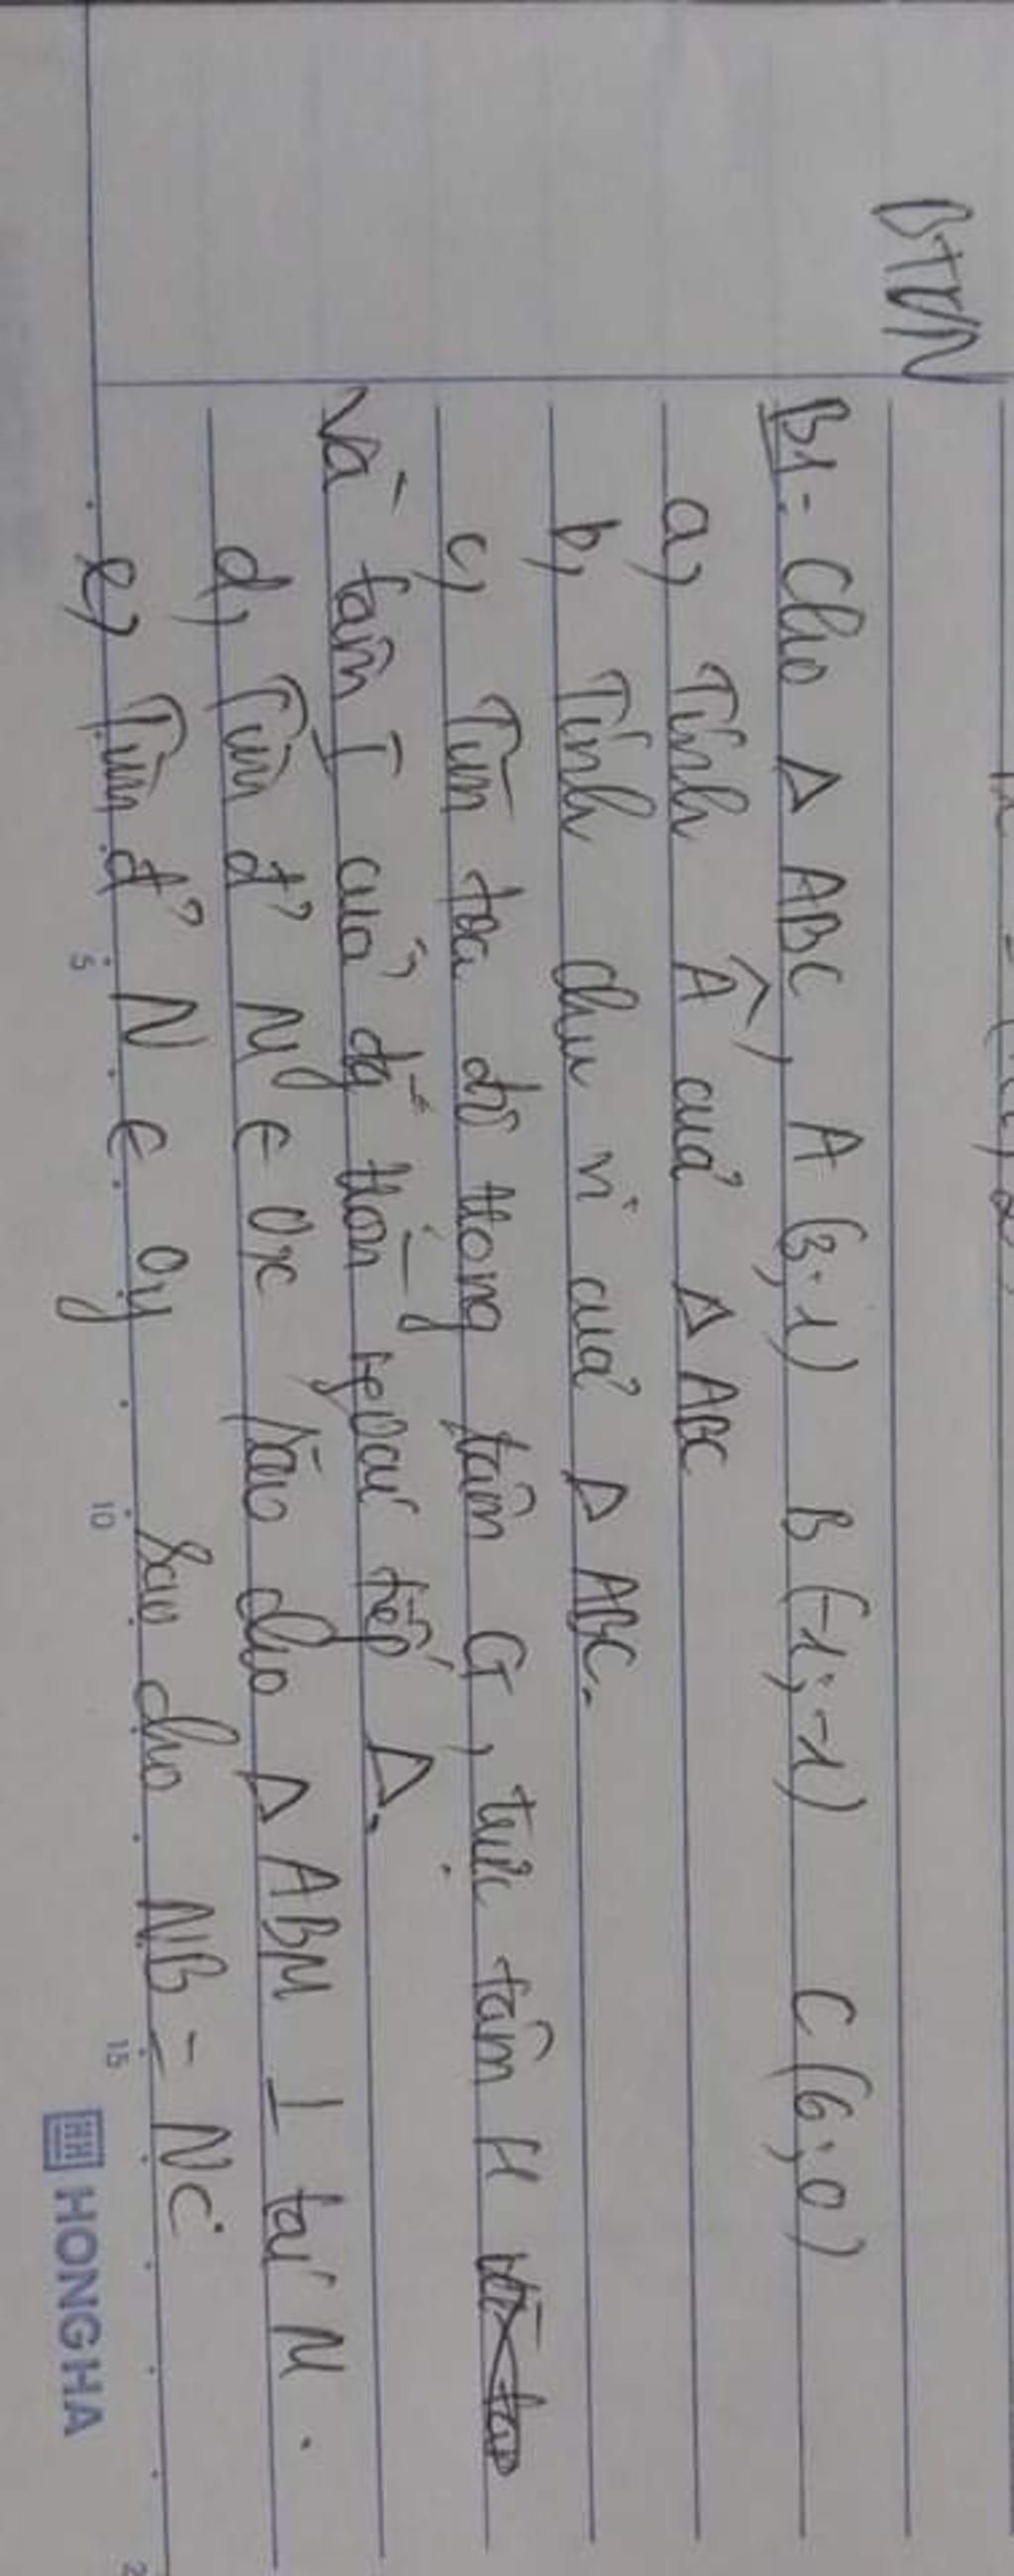 BTVN
B1: Cho Δ ABC, A (3;1) B (-1;-1) C (6;0)
a, Tính Â, của Δ ABC
b, Tính chu vi của Δ ABC.
c, Tìm tọa độ trọng tâm G, trực tâm H
Và tâm I của đg tròn ngoại tiếp Δ.
d, Tìm đ' M ∈ Ox sao cho Δ ABM ⊥ tại M.
e, Tìm đ' N ∈ Oy sao cho NB = NC
5 10 15 2
HH HONGHA